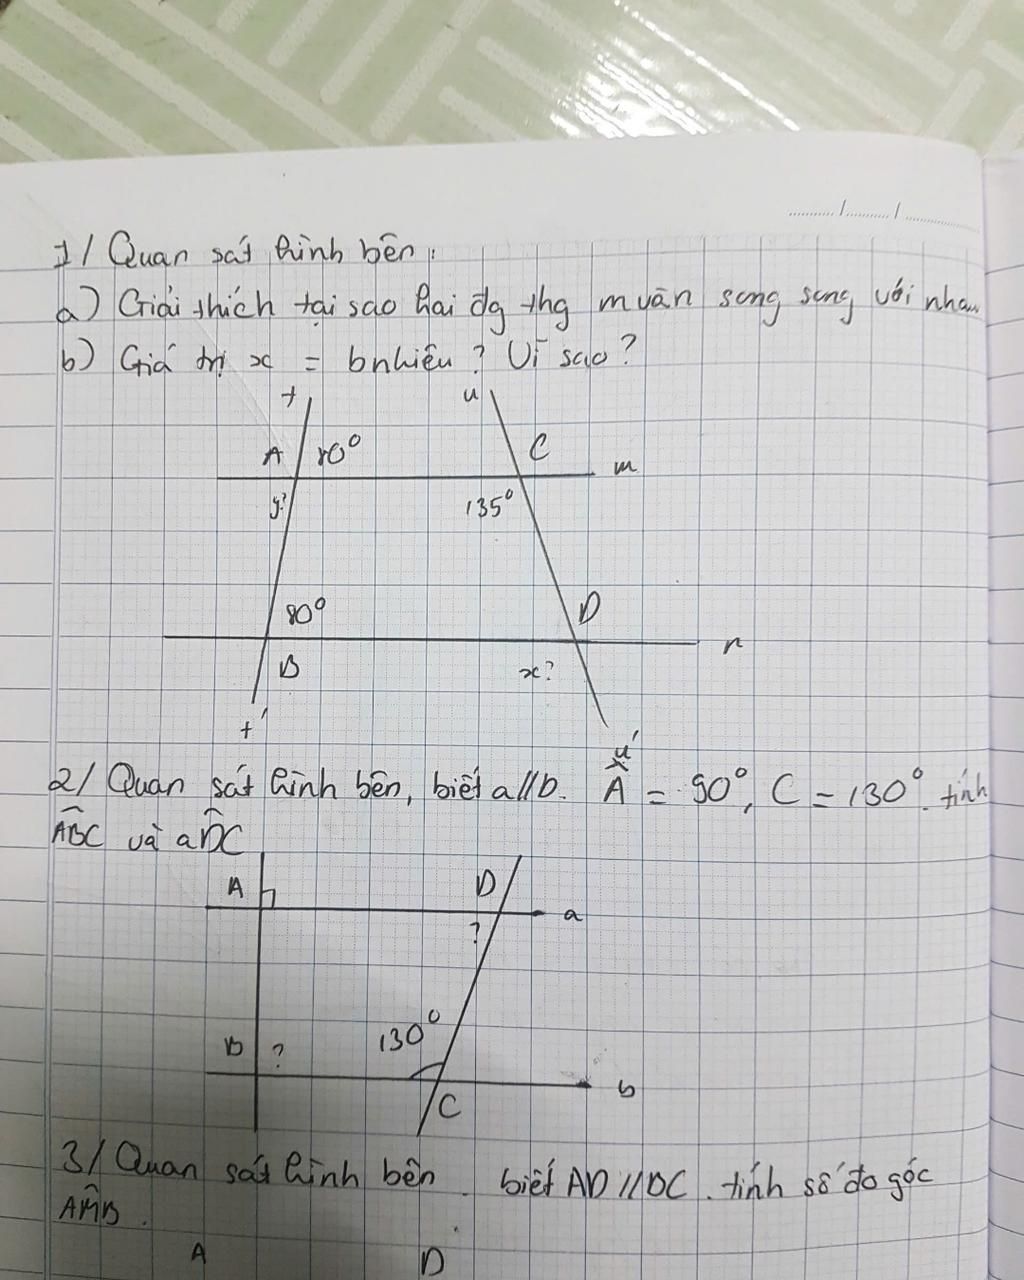 1/ Quan sát hình bên:
a) Giải thích tại sao hai đg thg m và n song song với nhau
b) Giá trị x = bnhiêu? Vì sao?
t u
A 80° C m
y? 135°
80° D
n
B x?
t'
u'
2/ Quan sát hình bên, biết a//b. Â = 90°, C = 130°. tính
ABC và aDC
A D
a
?
130°
B ?
b
C
3/ Quan sát hình bên. biết AD//DC. tính số đo góc
AMB.
A D